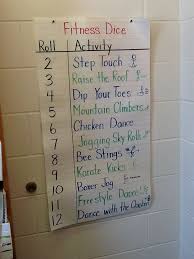 Fitness Dice
Roll Activity
2 Step Touch
3 Raise the Roof
4 Dip Your Toes
5 Mountain Climbers
6 Chicken Dance
7 Jogging Sky Rolls
8 Bee Stings
9 Karate Kicks
10 Boxer Jog
11 Freestyle Dance
12 Dance with the